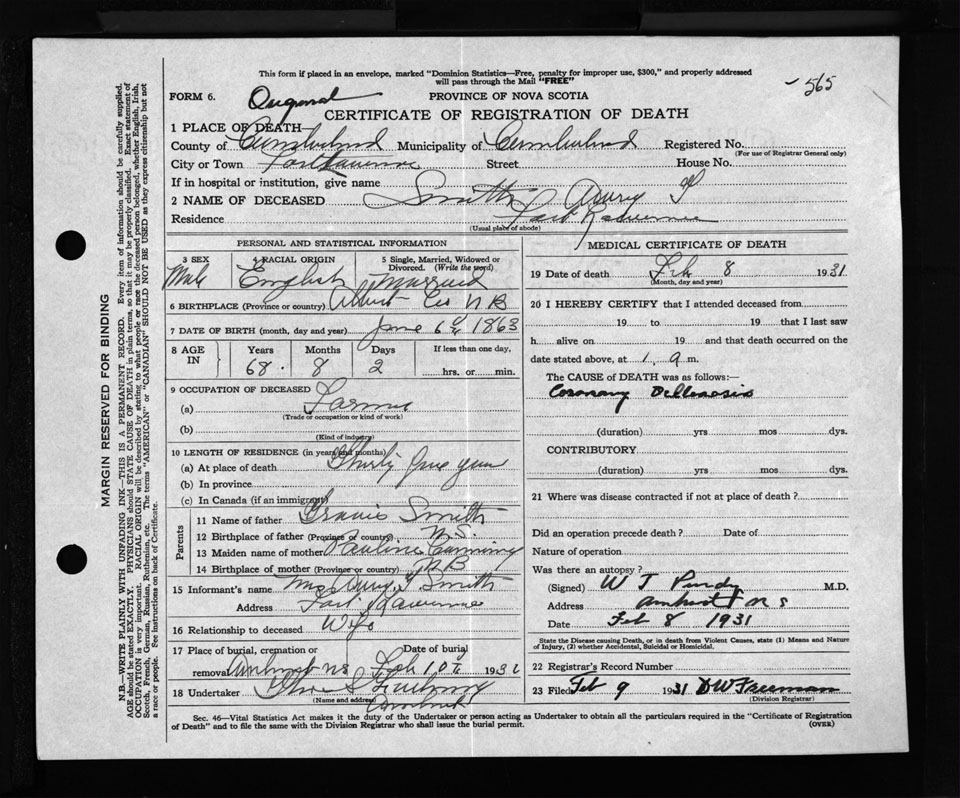 This form if placed in an envelope, marked "Dominion Statistics—Free, penalty for improper use, $300," and properly addressed
will pass through the Mail "FREE"
565
FORM 6. Original PROVINCE OF NOVA SCOTIA
CERTIFICATE OF REGISTRATION OF DEATH
1 PLACE OF DEATH—
County of Cumberland Municipality of Cumberland Registered No.
(For use of Registrar General only)
City or Town Street House No.
If in hospital or institution, give name
2 NAME OF DECEASED Smith
Residence
(Usual place of abode)
PERSONAL AND STATISTICAL INFORMATION
3 SEX 4 RACIAL ORIGIN 5 Single, Married, Widowed or Divorced. (Write the word)
Male English Married
6 BIRTHPLACE (Province or country) Albert Co N B
7 DATE OF BIRTH (month, day and year) June 6 1863
8 AGE IN Years Months Days If less than one day,
68 8 2 hrs. or min.
9 OCCUPATION OF DECEASED
(a) Farmer
(Trade or occupation or kind of work)
(b)
(Kind of industry)
10 LENGTH OF RESIDENCE (in years and months)
(a) At place of death Thirty five years
(b) In province
(c) In Canada (if an immigrant)
Parents
11 Name of father Smith
12 Birthplace of father (Province or country) N.S.
13 Maiden name of mother Pauline
14 Birthplace of mother (Province or country) N B
15 Informant's name Mrs Smith
Address
16 Relationship to deceased Wife
17 Place of burial, cremation or Date of burial
removal Amherst NS Feb 10 193
18 Undertaker
(Name and address) Amherst
MEDICAL CERTIFICATE OF DEATH
19 Date of death Feb 8 1931
(Month, day and year)
20 I HEREBY CERTIFY that I attended deceased from
19 to 19 that I last saw
h alive on 19 and that death occurred on the
date stated above, at 1 a m.
The CAUSE of DEATH was as follows:—
Coronary
(duration) yrs mos dys.
CONTRIBUTORY
(duration) yrs mos dys.
21 Where was disease contracted if not at place of death ?
Did an operation precede death ? Date of
Nature of operation
Was there an autopsy ?
(Signed) W T Purdy M.D.
Address Amherst N S
Date Feb 8 1931
State the Disease causing Death, or in death from Violent Causes, state (1) Means and Nature
of Injury, (2) whether Accidental, Suicidal or Homicidal.
22 Registrar's Record Number
23 Filed Feb 9 1931 D W Freeman
(Division Registrar)
Sec. 46—Vital Statistics Act makes it the duty of the Undertaker or person acting as Undertaker to obtain all the particulars required in the "Certificate of Registration
of Death" and to file the same with the Division Registrar who shall issue the burial permit. (OVER)
MARGIN RESERVED FOR BINDING
N.B.—WRITE PLAINLY WITH UNFADING INK—THIS IS A PERMANENT RECORD. Every item of information should be carefully supplied.
AGE should be stated EXACTLY. PHYSICIANS should STATE CAUSE OF DEATH in plain terms, so that it may be properly classified. Exact statement of
OCCUPATION is very important. RACIAL ORIGIN will be described by stating to what people or race the deceased person belonged, whether English, Irish,
Scotch, French, German, Russian, Ruthenian, etc. The terms "AMERICAN" or "CANADIAN" SHOULD NOT BE USED as they express citizenship but not
a race or people. See instructions on back of Certificate.